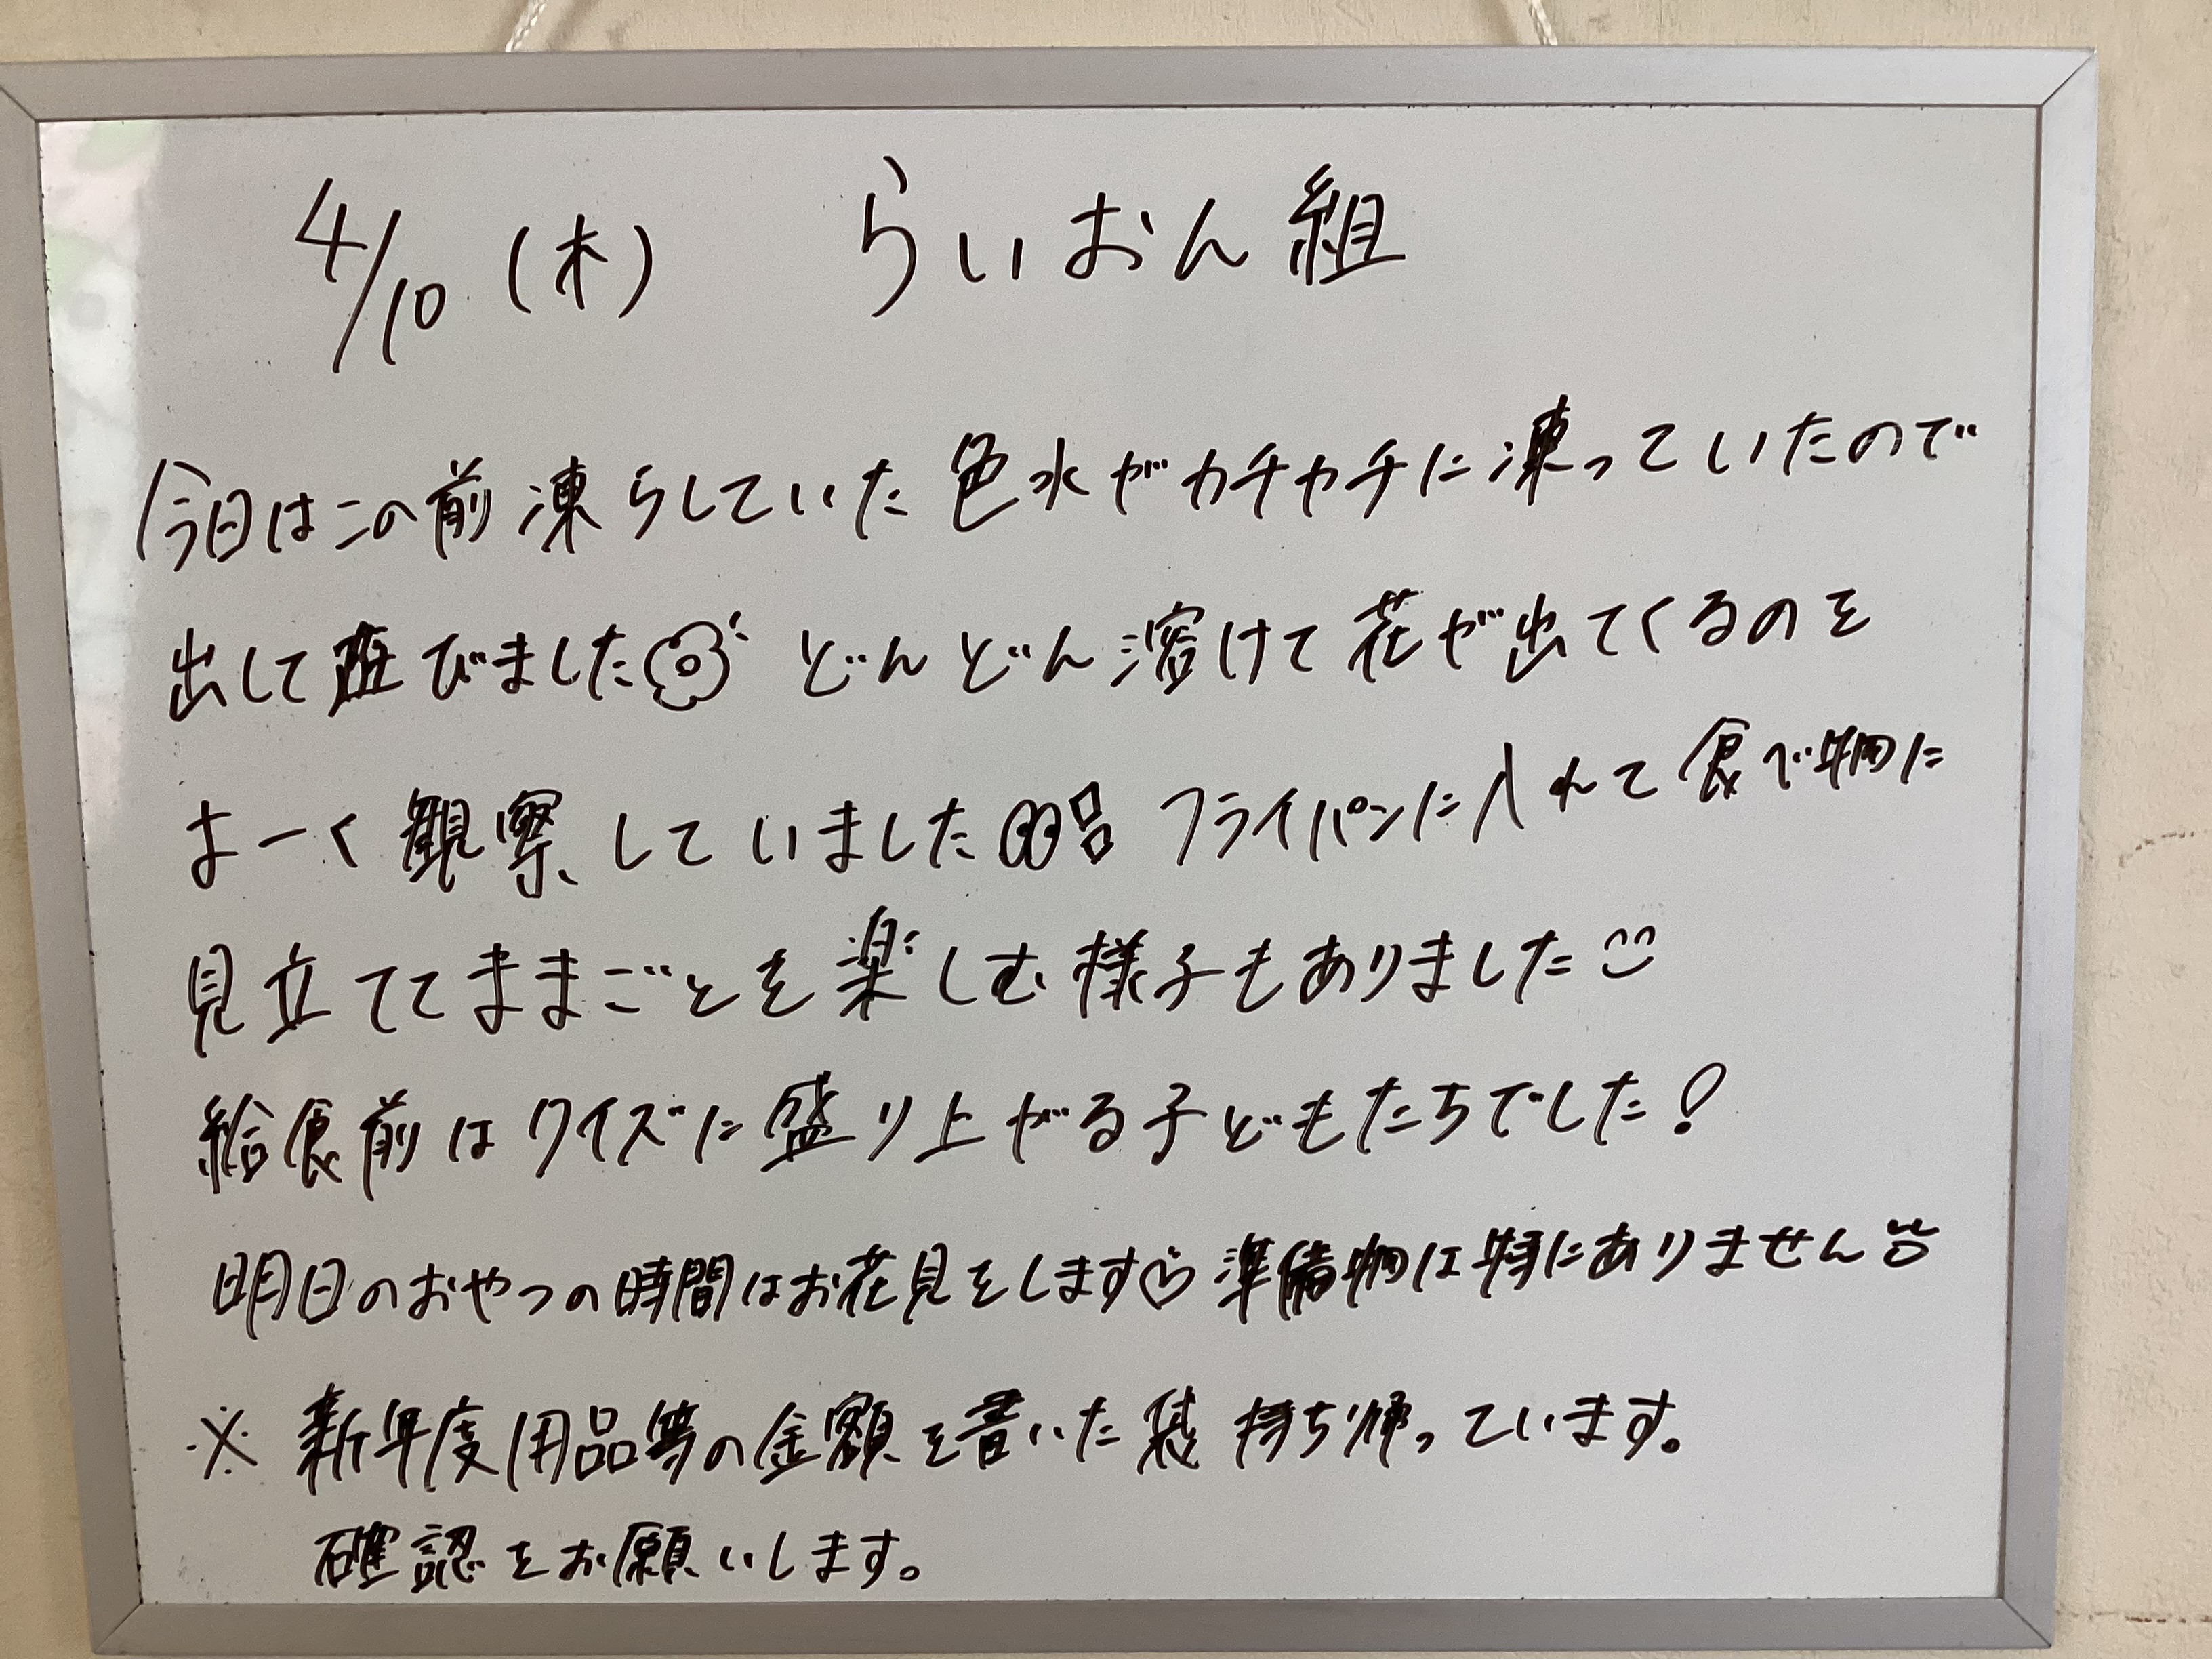 4/10 (木) らいおん組
今日はこの前凍らしていた色水がカチカチに凍っていたので
出して遊びました どんどん溶けて花が出てくるのを
よーく観察していました フライパンに入れて食べ物に
見立ててままごとを楽しむ様子もありました
給食前はクイズに盛り上がる子どもたちでした!
明日のおやつの時間はお花見をします♡ 準備物は特にありません
※ 新年度用品等の金額を書いた袋持ち帰っています。
確認をお願いします。